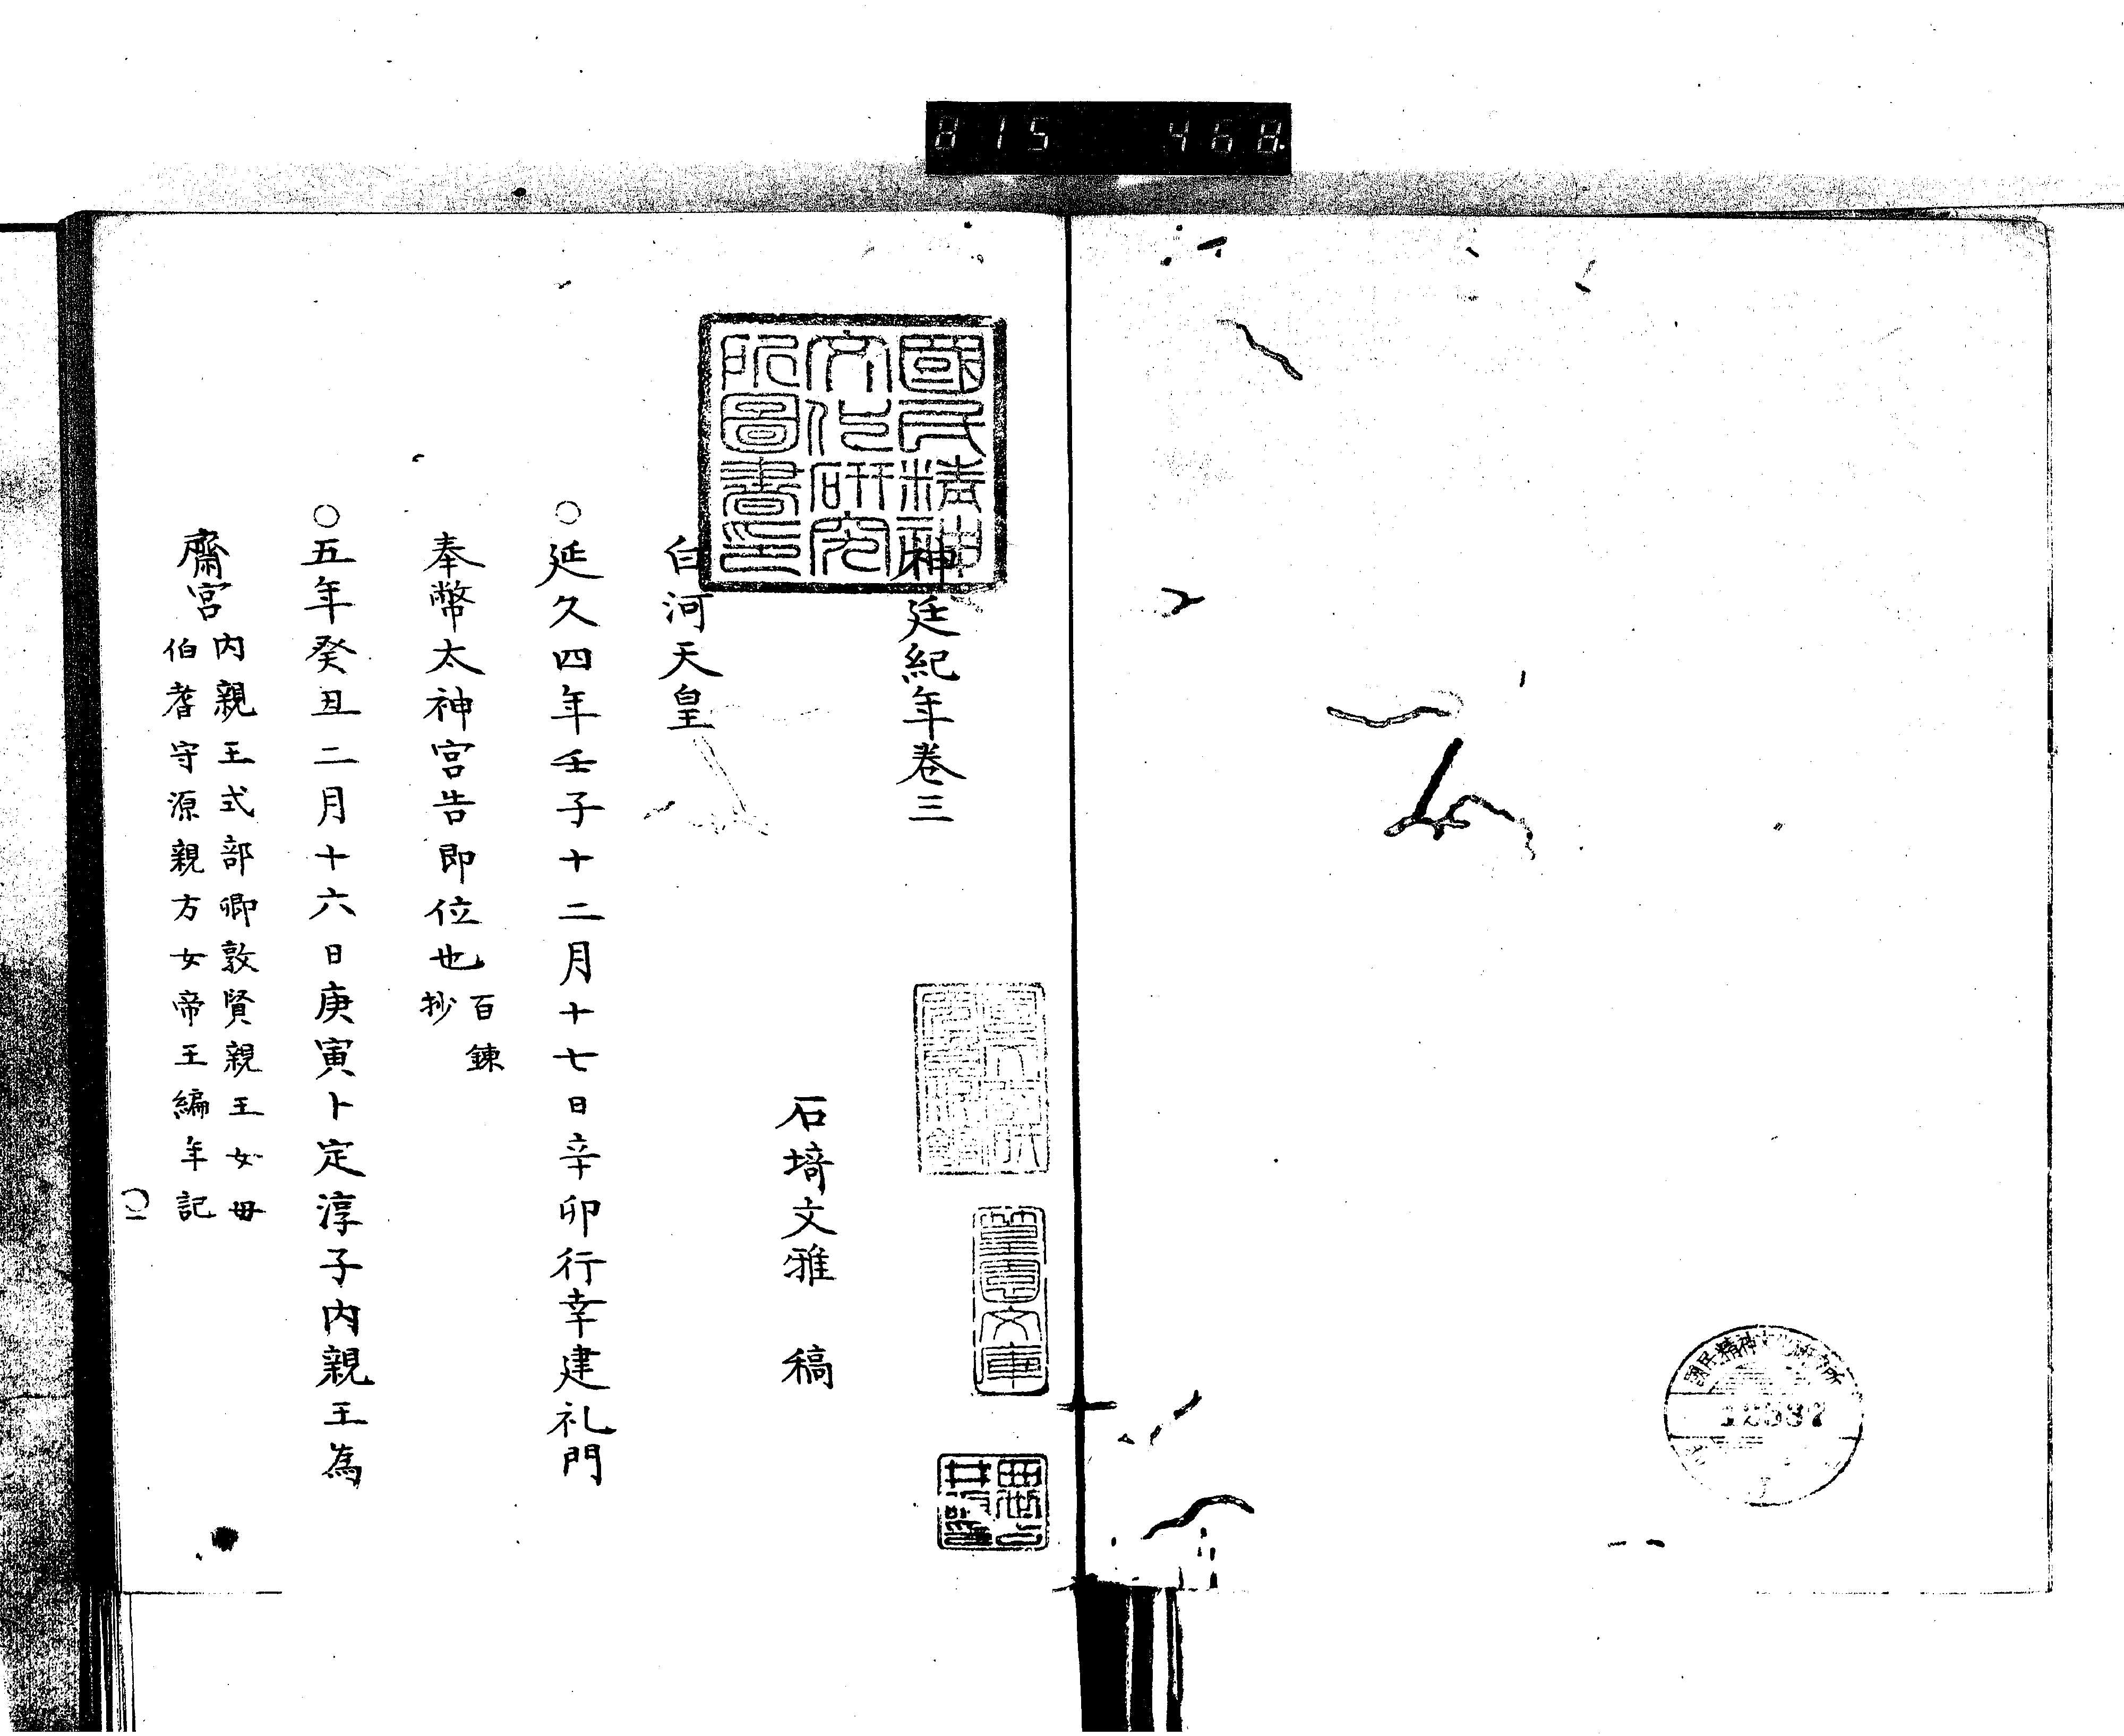 815 468
神廷紀年卷三
石埼文雅 稿
白河天皇
○延久四年壬子十二月十七日辛卯行幸建礼門
奉幣太神宮告即位也
百錬
抄
○五年癸丑二月十六日庚寅卜定淳子内親王為
齋宮
内親王式部卿敦賢親王女母
伯耆守源親方女帝王編年記
國民精神
文化研究
所圖書印
文庫
國民精神